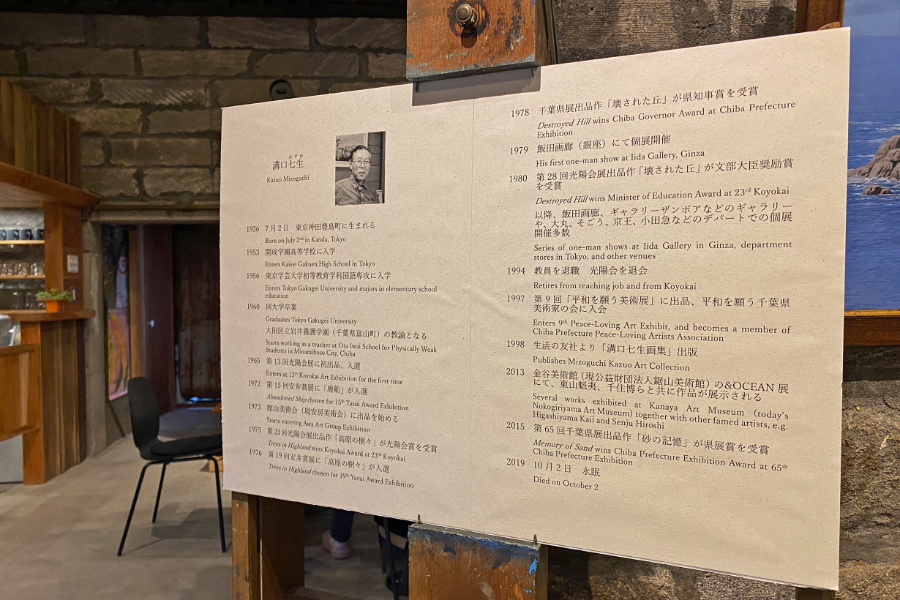 かずお
溝口七生
Kazuo Mizoguchi
1936 7月2日 東京神田豊島町に生まれる
Born on July 2nd in Kanda, Tokyo
1953 開成学園高等学校に入学
Enters Kaisei Gakuen High School in Tokyo
1956 東京学芸大学初等教育学科国語専攻に入学
Enters Tokyo Gakugei University and majors in elementary school
education
1960 同大学卒業
Graduates Tokyo Gakugei University
大田区立羽井養護学園(千葉県富山町)の教諭となる
Starts working as a teacher at Ota Iwai School for Physically Weak
Students in Minamiboso City, Chiba
1965 第13回光陽会展に初出品、入選
Enters at 13th Koyokai Art Exhibition for the first time
1972 第15回安井賞展に「廃船」が入選
Abandoned Ship chosen for 15th Yasui Award Exhibition
1973 館山美術会(現安房美術会)に出品を始める
Starts entering Awa Art Group Exhibition
1975 第23回光陽会展出品作「高原の樹々」が光陽会賞を受賞
Trees in Highland wins Koyokai Award at 23rd Koyokai
1976 第19回安井賞展に「高原の樹々」が入選
Trees in Highland chosen for 19th Yasui Award Exhibition
1978 千葉県展出品作「壊された丘」が県知事賞を受賞
Destroyed Hill wins Chiba Governor Award at Chiba Prefecture
Exhibition
1979 飯田画廊(銀座)にて個展開催
His first one-man show at Iida Gallery, Ginza
1980 第28回光陽会展出品作「壊された丘」が文部大臣奨励賞
を受賞
Destroyed Hill wins Minister of Education Award at 23rd Koyokai
以降、飯田画廊、ギャラリーザンボアなどのギャラリー
や、大丸、そごう、京王、小田急などのデパートでの個展
開催多数
Series of one-man shows at Iida Gallery in Ginza, department
stores in Tokyo, and other venues
1994 教員を退職 光陽会を退会
Retires from teaching job and from Koyokai
1997 第9回「平和を願う美術展」に出品、平和を願う千葉県
美術家の会に入会
Enters 9th Peace-Loving Art Exhibit, and becomes a member of
Chiba Prefecture Peace-Loving Artists Association
1998 生活の友社より「溝口七生画集」出版
Publishes Mizoguchi Kazuo Art Collection
2013 金谷美術館(現公益財団法人鋸山美術館)の&OCEAN展
にて、東山魁夷、千住博らと共に作品が展示される
Several works exhibited at Kanaya Art Museum (today's
Nokogiriyama Art Museum) together with other famed artists, e.g.
Higashiyama Kaii and Senju Hiroshi
2015 第65回千葉県展出品作「砂の記憶」が県展賞を受賞
Memory of Sand wins Chiba Prefecture Exhibition Award at 65th
Chiba Prefecture Exhibition
2019 10月2日 永眠
Died on October 2